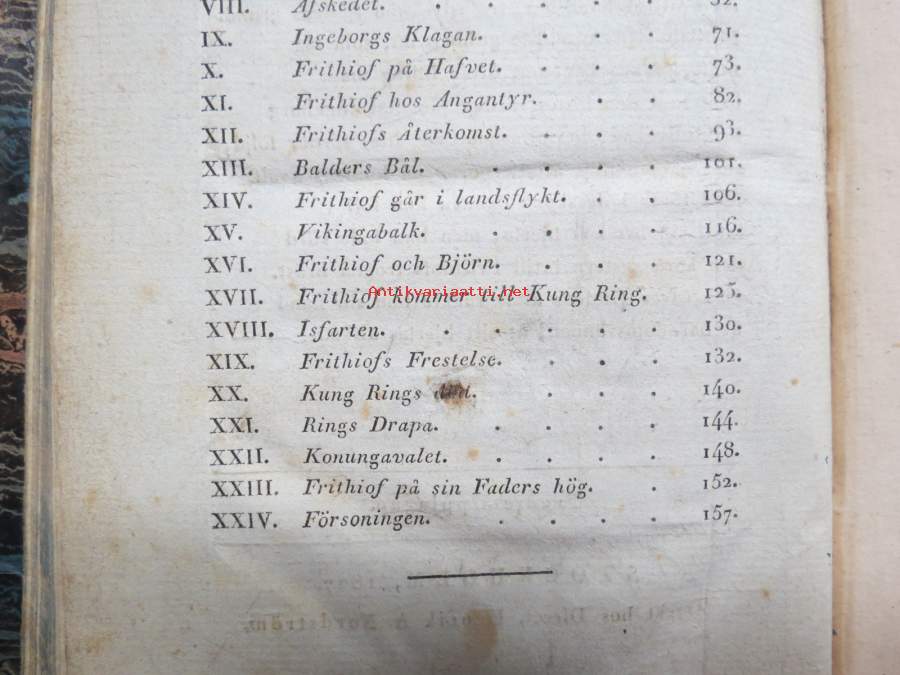 VIII. Afskedet. . . . . . 52.
IX. Ingeborgs Klagan. . . . 71.
X. Frithiof på Hafvet. . . . 73.
XI. Frithiof hos Angantyr. . . 82.
XII. Frithiofs Återkomst. . . . 93.
XIII. Balders Bål. . . . . 101.
XIV. Frithiof går i landsflykt. . . 106.
XV. Vikingabalk. . . . . 116.
XVI. Frithiof och Björn. . . . 121.
Antikvariaatti.net
XVII. Frithiof kommer till Kung Ring. 125.
XVIII. Isfarten. . . . . . 130.
XIX. Frithiofs Frestelse. . . . 132.
XX. Kung Rings död. . . . 140.
XXI. Rings Drapa. . . . . 144.
XXII. Konungavalet. . . . . 148.
XXIII. Frithiof på sin Faders hög. . 152.
XXIV. Försoningen. . . . . 157.